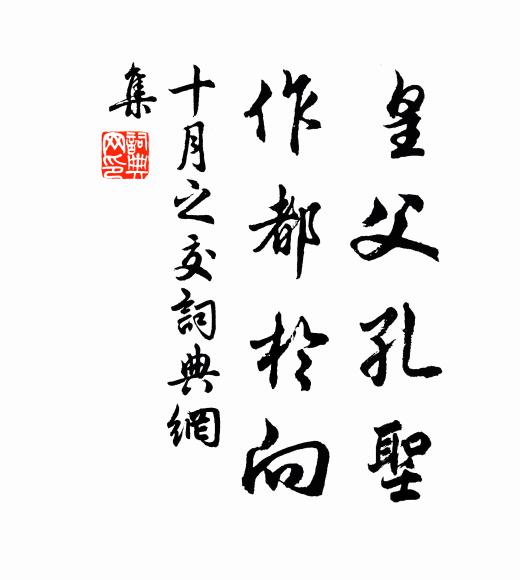 皇父孔聖
作都於向
十月之交詞典網
集
詞典網印